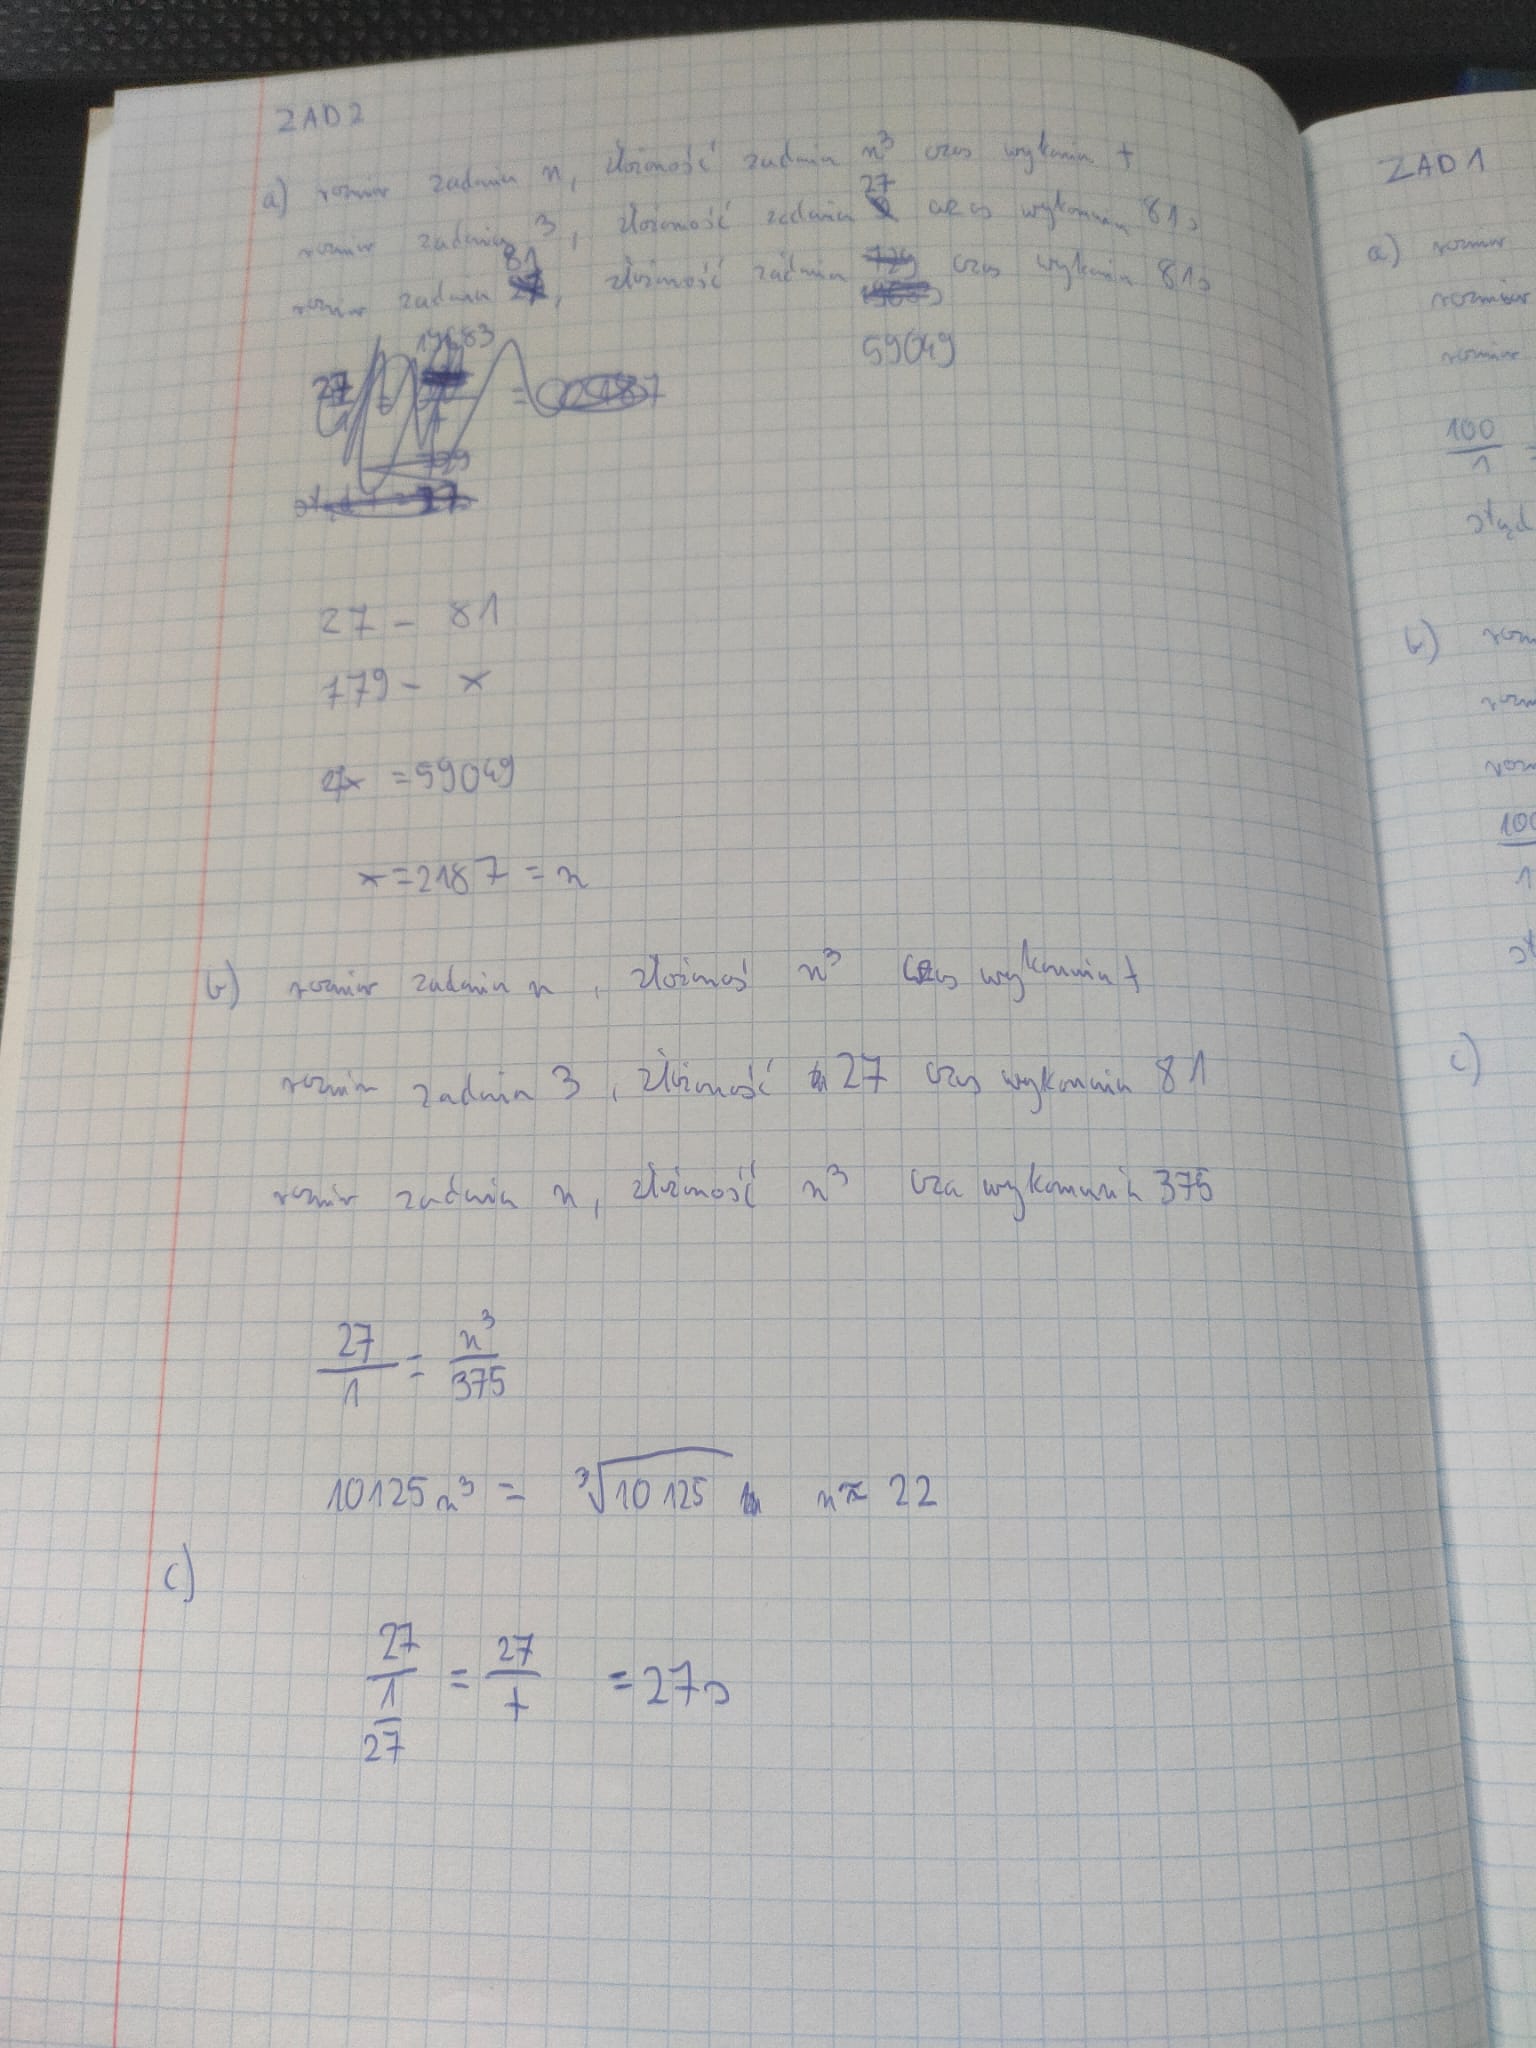 ZAD 2
a) rozmiar zadania n, złożoność zadania n³ czas wykania t
rozmiar zadania 3, złożoność zadania 27 czas wykonania 81s
rozmiar zadania 81, złożoność zadania czas wykania 81s
59049
27 - 81
779 - x
27x = 59049
x = 2187 = n
b) rozmiar zadania n, złożonoś n³ czas wykonania t
rozmiar zadania 3, złożoność 27 czas wykonania 81
rozmiar zadania n, złożoność n³ cza wykonania 375
27/1 = n³/375
10125 n³ = ³√10125 n ≈ 22
c)
27/1/27 = 27/t = 27s
ZAD 1
a) rozmiar
rozmiar
rozmiar
100/1 =
stąd
b)
100
1
c)